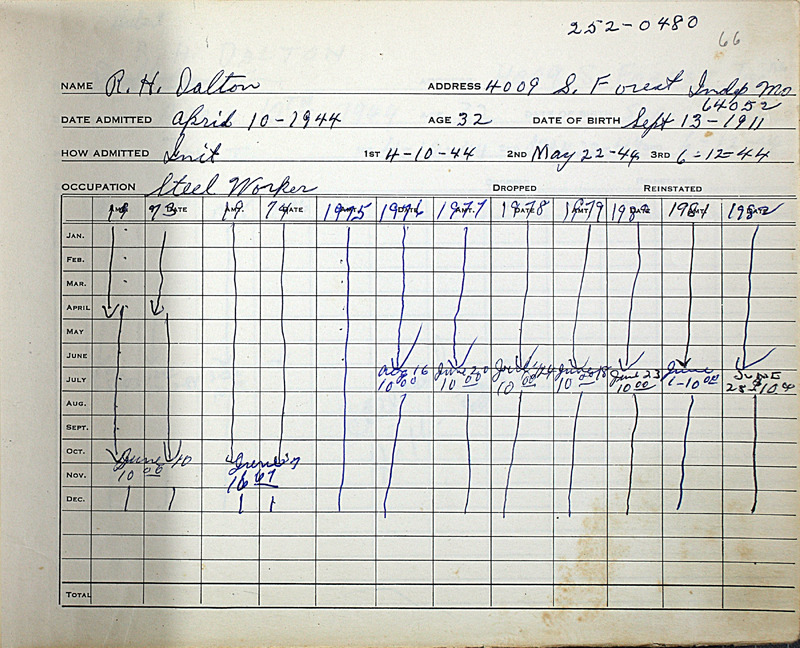 252-0480
66
NAME R. H. Dalton ADDRESS 4009 S. Forest Indep Mo
64052
DATE ADMITTED April 10-1944 AGE 32 DATE OF BIRTH Sept 13-1911
HOW ADMITTED Init 1ST 4-10-44 2ND May 22-44 3RD 6-12-44
OCCUPATION Steel Worker DROPPED REINSTATED
AMT. 73 DATE AMT. 74 DATE 1975 AMT. 1976 DATE 1977 AMT. 1978 DATE 1979 AMT. 1980 DATE 1981 AMT. 1982 DATE
JAN.
FEB.
MAR.
APRIL
MAY
JUNE
Aug 16 June 20 June 18 June 23 June JUNE
JULY 10 00 10 00 10 00 10 00 10 00 1-10 00
AUG.
SEPT.
OCT.
June 10 June
NOV. 10 00 10
DEC.
TOTAL